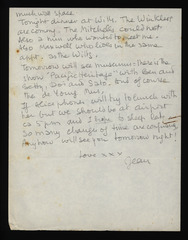 much wild space.
Tonight dinner at Wills. The Winklers
are coming. The Mitchells could not.
Also a him who wanted to meet me +
Mo Maxwell who lives in the same
apt. as the Wills.
Tomorrow will see museums - here's the
show "Pacific Heritage" with Ben and
Betty, Dori and Soto, and of course
the de Young Mus.
If Alice phones will try to lunch with
her but we should be at airport
ca 5 p.m. and I hope to sleep late
So many change of time are confusing
Anyhow will see you tomorrow night!
Love x x x
Jean